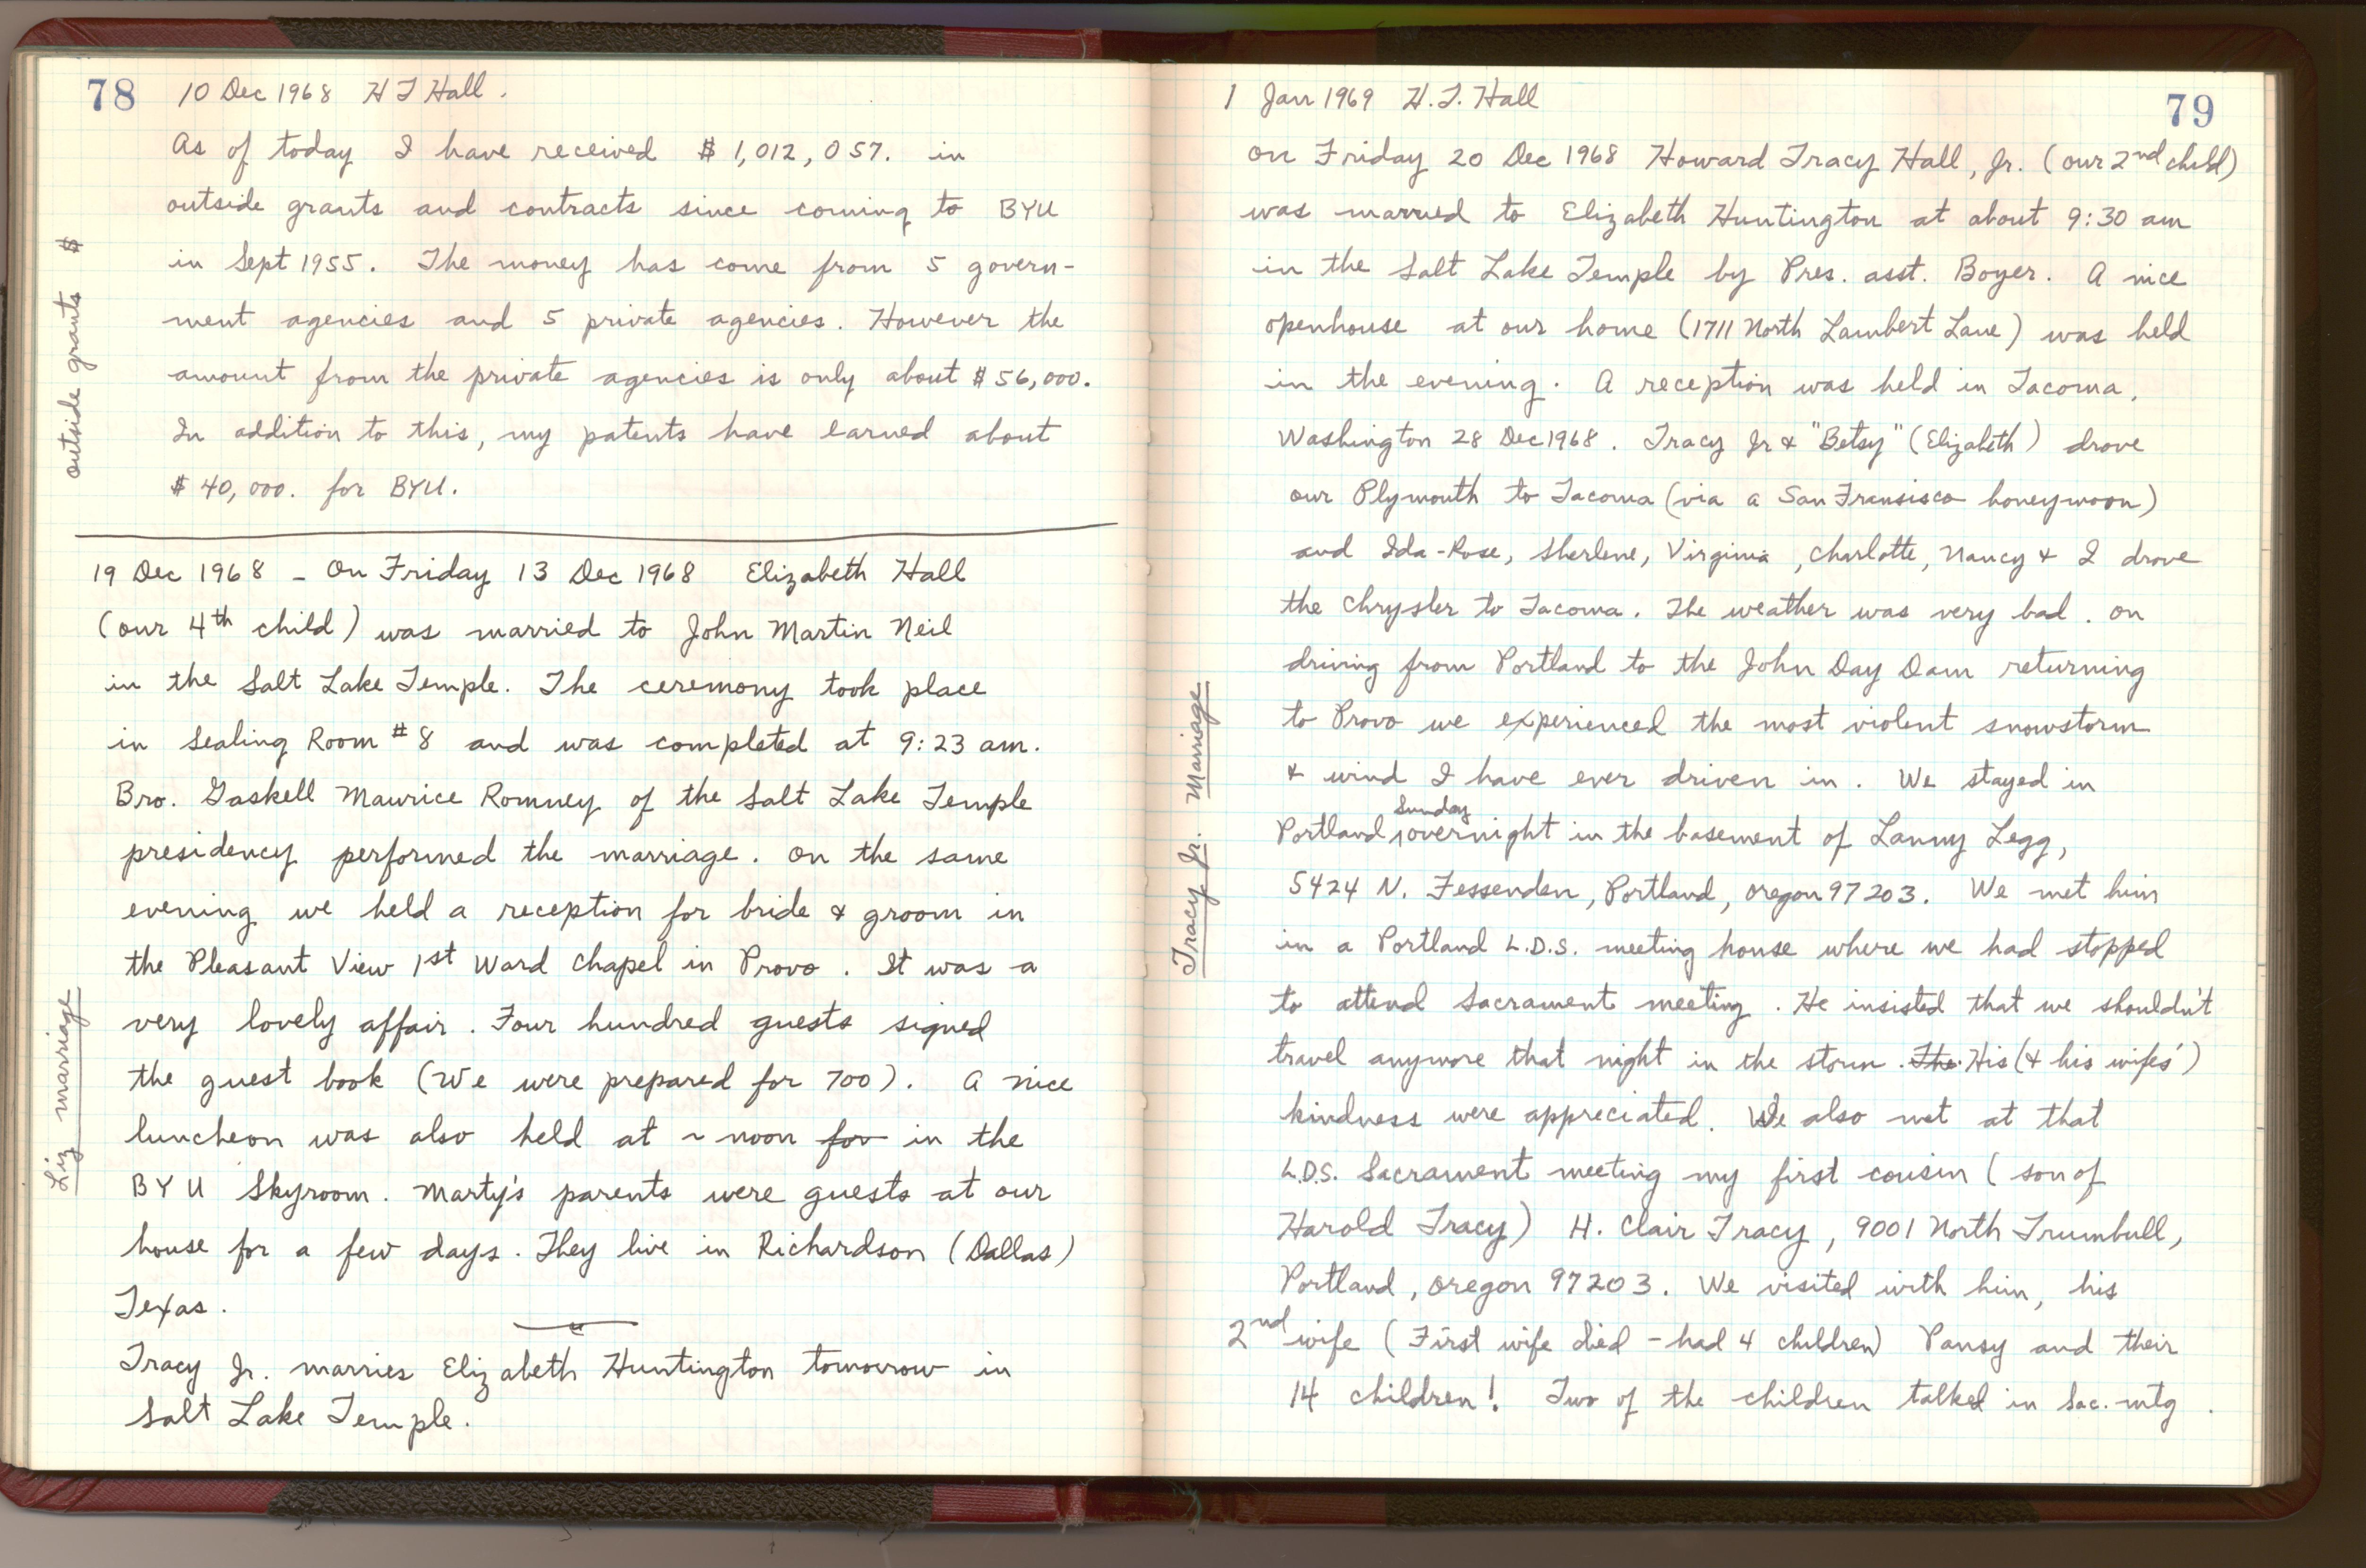 78 10 Dec 1968 H T Hall.
As of today I have received $1,012,057. in
outside grants and contracts since coming to BYU
in Sept 1955. The money has come from 5 govern-
ment agencies and 5 private agencies. However the
amount from the private agencies is only about $56,000.
In addition to this, my patents have earned about
$40,000. for BYU.
outside grants $
19 Dec 1968 - On Friday 13 Dec 1968 Elizabeth Hall
(our 4th child) was married to John Martin Neil
in the Salt Lake Temple. The ceremony took place
in Sealing Room #8 and was completed at 9:23 am.
Bro. Gaskell Maurice Romney of the Salt Lake Temple
presidency performed the marriage. On the same
evening we held a reception for bride & groom in
the Pleasant View 1st Ward Chapel in Provo. It was a
very lovely affair. Four hundred guests signed
the guest book (We were prepared for 700). A nice
luncheon was also held at ~ noon for in the
BYU Skyroom. Marty's parents were guests at our
house for a few days. They live in Richardson (Dallas)
Texas.
Liz marriage
Tracy Jr. marries Elizabeth Huntington tomorrow in
Salt Lake Temple.
1 Jan 1969 H.T. Hall 79
On Friday 20 Dec 1968 Howard Tracy Hall, Jr. (our 2nd child)
was married to Elizabeth Huntington at about 9:30 am
in the Salt Lake Temple by Pres. asst. Boyer. A nice
openhouse at our home (1711 North Lambert Lane) was held
in the evening. A reception was held in Tacoma,
Washington 28 Dec 1968. Tracy Jr & "Betsy" (Elizabeth) drove
our Plymouth to Tacoma (via a San Fransisco honeymoon)
and Ida-Rose, Sherlene, Virginia, Charlotte, Nancy & I drove
the Chrysler to Tacoma. The weather was very bad. On
driving from Portland to the John Day Dam returning
to Provo we experienced the most violent snowstorm
& wind I have ever driven in. We stayed in
Portland Sunday overnight in the basement of Lanny Legg,
5424 N. Fessenden, Portland, Oregon 97203. We met him
in a Portland L.D.S. meeting house where we had stopped
to attend Sacrament meeting. He insisted that we shouldn't
travel anymore that night in the storm. The His (& his wifes')
kindness were appreciated. We also met at that
L.D.S. Sacrament meeting my first cousin (son of
Harold Tracy) H. Clair Tracy, 9001 North Trumbull,
Portland, Oregon 97203. We visited with him, his
2nd wife (First wife died - had 4 children) Pansy and their
14 children! Two of the children talked in Sac. mtg.
Tracy Jr. Marriage